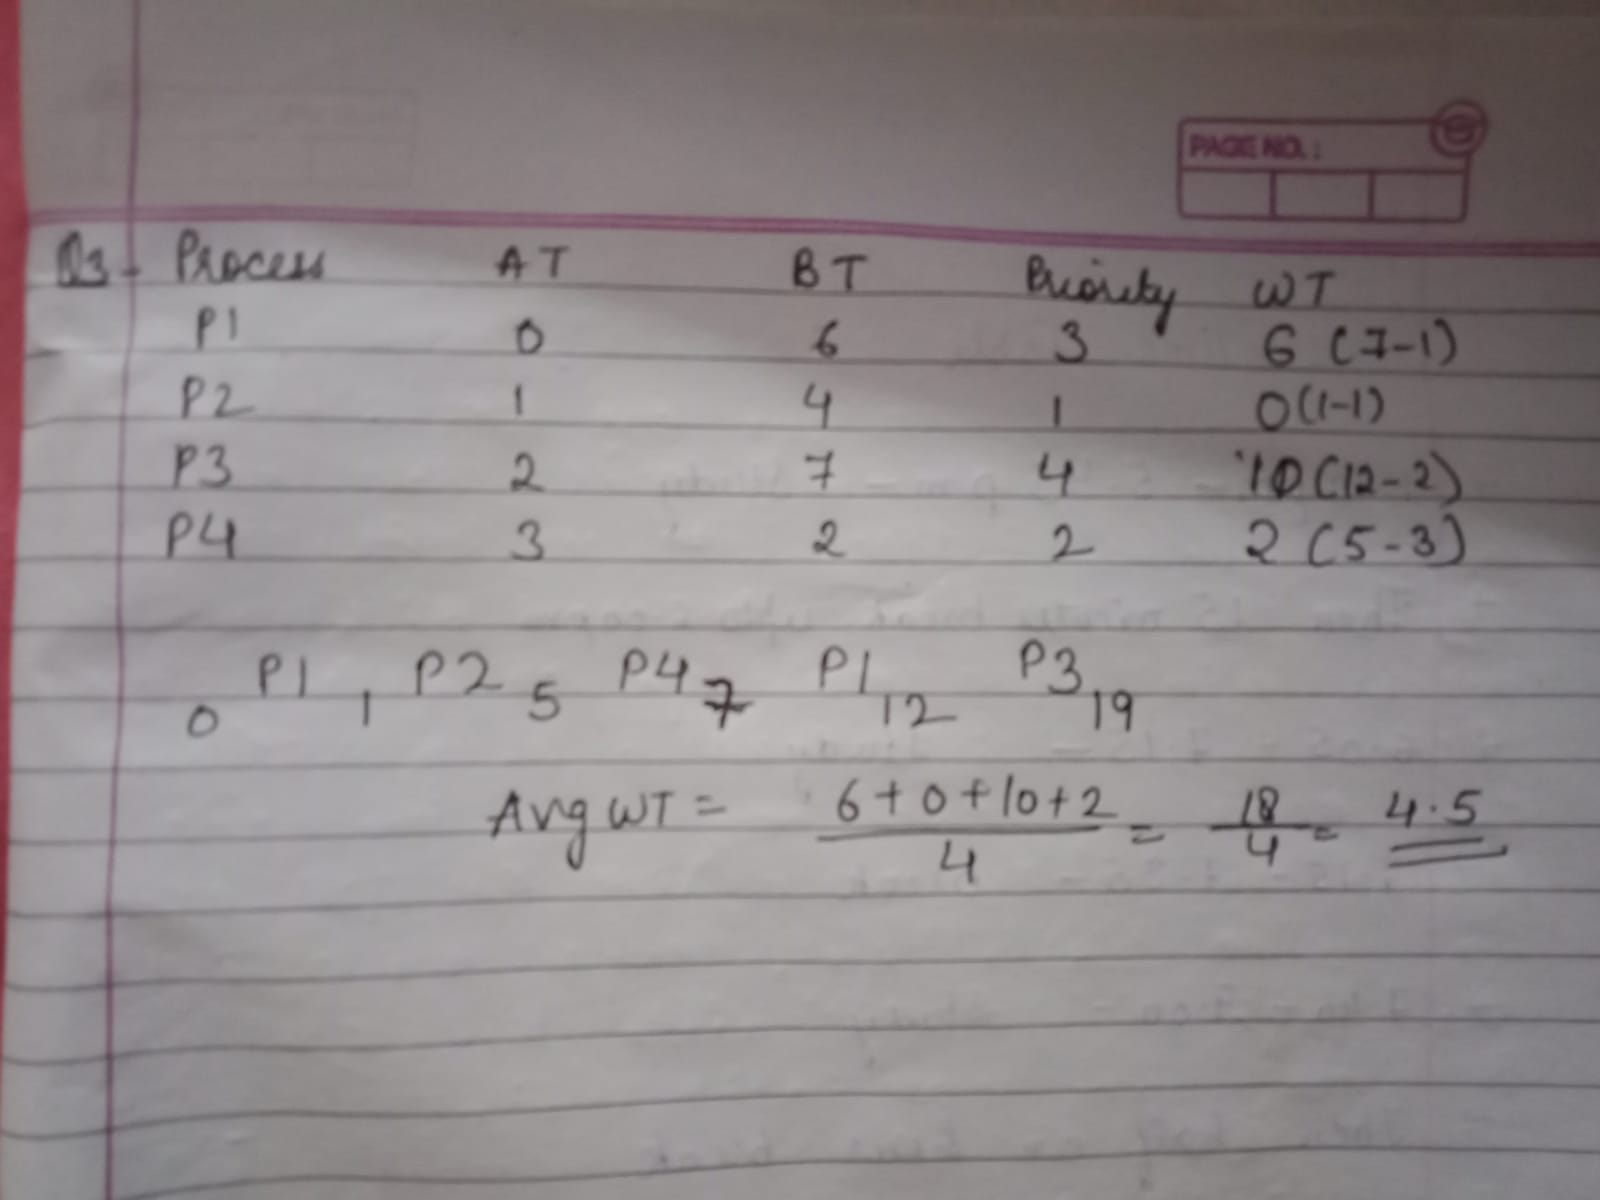 PAGE NO.:
Q3 Process AT BT Priority WT
P1 0 6 3 6 (7-1)
P2 1 4 1 0(1-1)
P3 2 7 4 10(12-2)
P4 3 2 2 2 (5-3)
0 P1 1 P2 5 P4 7 P1 12 P3 19
Avg WT = 6+0+10+2 / 4 = 18 / 4 = 4.5